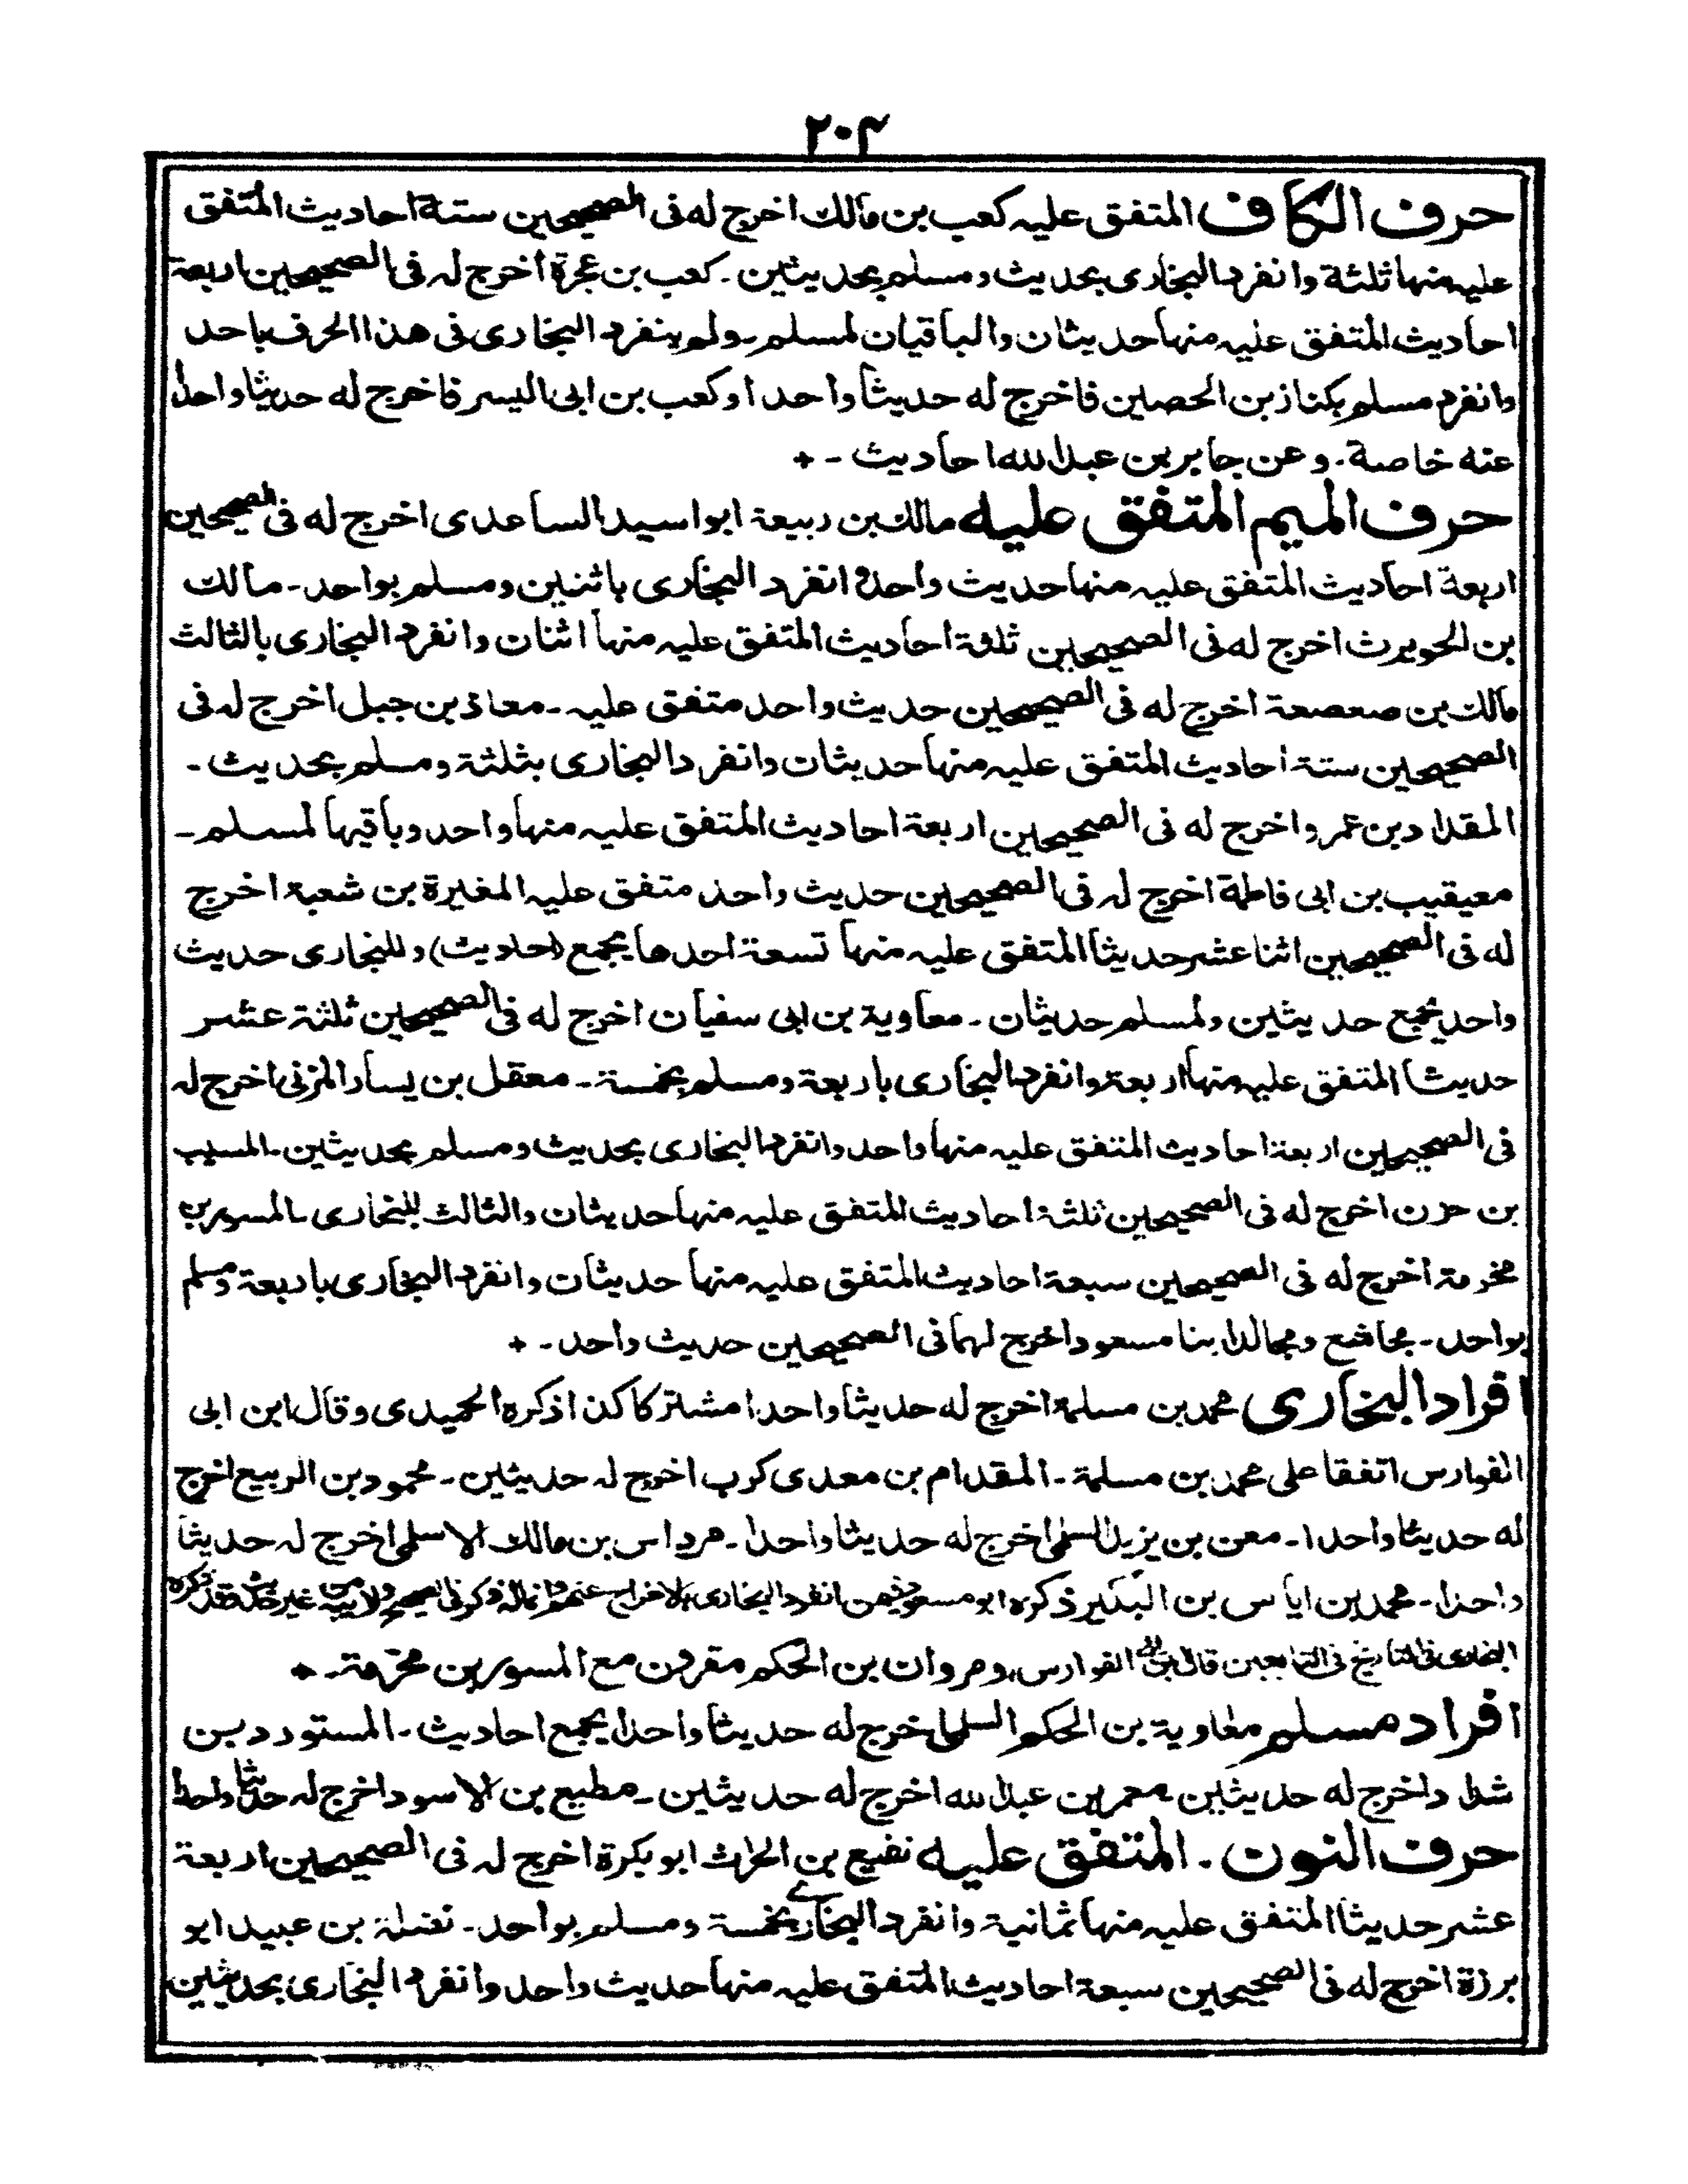 ٢٠٤
حرف الكاف المتفق عليه كعب بن مالك اخرج له فى الصحيحين ستة احاديث المتفق
عليه منها ثلثة وانفرد البخارى بحديث ومسلم بحديثين ـ كعب بن عجرة اخرج له فى الصحيحين اربعة
احاديث المتفق عليه منها حديثان والباقيان لمسلم ـ ولم ينفرد البخارى فى هذا الحرف باحد
وانفرد مسلم بكناز بن الحصين فاخرج له حديثا واحدا وكعب بن ابى اليسر فاخرج له حديثا واحدا
عنه خاصة ـ وعن جابر بن عبد الله احاديث ـ +
حرف الميم المتفق عليه مالك بن ربيعة ابو اسيد الساعدى اخرج له فى الصحيحين
اربعة احاديث المتفق عليه منها حديث واحد وانفرد البخارى باثنين ومسلم بواحد ـ مالك
بن الحويرث اخرج له فى الصحيحين ثلثة احاديث المتفق عليه منها اثنان وانفرد البخارى بالثالث
مالك بن صعصعة اخرج له فى الصحيحين حديث واحد متفق عليه ـ معاذ بن جبل اخرج له فى
الصحيحين ستة احاديث المتفق عليه منها حديثان وانفرد البخارى بثلثة ومسلم بحديث ـ
المقداد بن عمرو اخرج له فى الصحيحين اربعة احاديث المتفق عليه منها واحد وباقيها لمسلم ـ
معيقيب بن ابى فاطمة اخرج له فى الصحيحين حديث واحد متفق عليه المغيرة بن شعبة اخرج
له فى الصحيحين اثنا عشر حديثا المتفق عليه منها تسعة احدها يجمع (احاديث) وللبخارى حديث
واحد يجمع حديثين ولمسلم حديثان ـ معاوية بن ابى سفيان اخرج له فى الصحيحين ثلثة عشر
حديثا المتفق عليه منها اربعة وانفرد البخارى باربعة ومسلم بخمسة ـ معقل بن يسار المزنى اخرج له
فى الصحيحين اربعة احاديث المتفق عليه منها واحد وانفرد البخارى بحديث ومسلم بحديثين ـ المسيب
بن حزن اخرج له فى الصحيحين ثلثة احاديث المتفق عليه منها حديثان والثالث للبخارى ـ المسور بن
مخرمة اخرج له فى الصحيحين سبعة احاديث المتفق عليه منها حديثان وانفرد البخارى باربعة ومسلم
بواحد ـ مجاشع ومجالد ابنا مسعود اخرج لهما فى الصحيحين حديث واحد ـ +
افراد البخارى محمد بن مسلمة اخرج له حديثا واحدا مشتركا كذا ذكره الحميدى وقال ابن ابى
الفوارس اتفقا على محمد بن مسلمة ـ المقدام بن معدى كرب اخرج له حديثين ـ محمود بن الربيع اخرج
له حديثا واحدا ـ معن بن يزيد السلمى اخرج له حديثا واحدا ـ مرداس بن مالك الاسلمى اخرج له حديثا
واحدا ـ محمد بن اياس بن البكير ذكره ابو مسعود فيمن انفرد البخارى بالاخراج عنهم وانما له ذكر فى الصحيح ولا يثبت غير ذلك وقد ذكره
البخارى فى التاريخ فى التابعين قال بن ابى الفوارس ومروان بن الحكم مقرون مع المسور بن مخرمة ـ +
افراد مسلم معاوية بن الحكم السلمى اخرج له حديثا واحدا يجمع احاديث ـ المستورد بن
شداد اخرج له حديثين معمر بن عبد الله اخرج له حديثين ـ مطيع بن الاسود اخرج له حديثا واحدا
حرف النون ـ المتفق عليه نفيع بن الحارث ابو بكرة اخرج له فى الصحيحين اربعة
عشر حديثا المتفق عليه منها ثمانية وانفرد البخارى بخمسة ومسلم بواحد ـ نضلة بن عبيد ابو
برزة اخرج له فى الصحيحين سبعة احاديث المتفق عليه منها حديث واحد وانفرد البخارى بحديثين